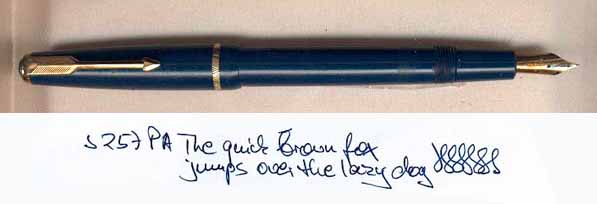 S257PA The quick brown fox
jumps over the lazy dog